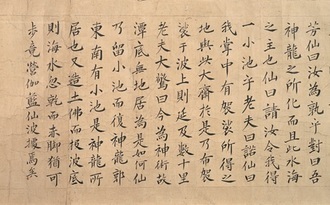 芳仙曰汝為孰乎對曰吾
神龍之所化而且此水海
之主也仙曰請汝令我得
一小池乎老夫曰詣仙曰
我掌中有袈裟所得之
地與此大齊於是乃帀袈
裟于波上則延及數十里
老夫大驚曰今為神術故
潭底無地居為是如何仙
乃留小池而復神龍郭
東南有小池是神龍所
居也又造土佛而投波底
則海水忽乾而未脚猶可
步竟營伽藍仙波擾萬兵